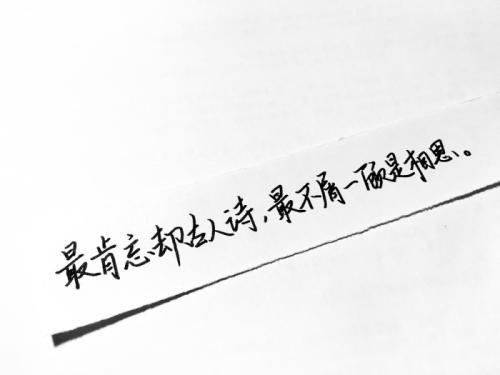 最肯忘却古人诗,最不屑一顾是相思。